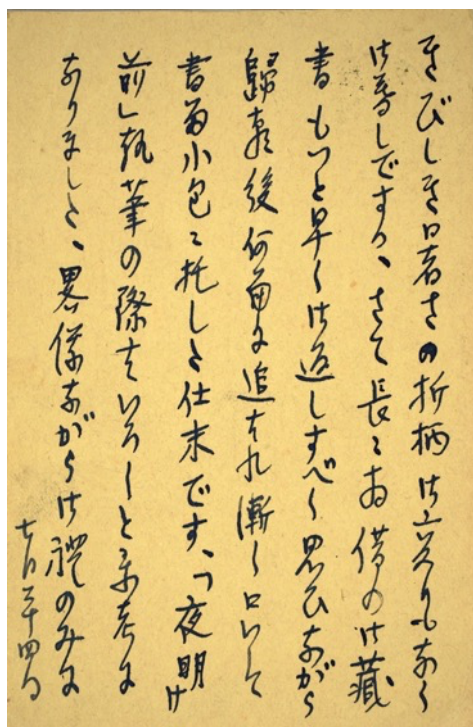 きびしき日暑さの折柄御立ちもなく
御暮しですか、さて長々お借の御蔵
書もつと早く御返しすべく思ひながら
歸京後何角に追はれ漸く
書留小包に托した仕末です、「夜明け
前」執筆の際はいろ〳〵と参考に
なりました、畧儀ながら御禮のみに
七月二十四日